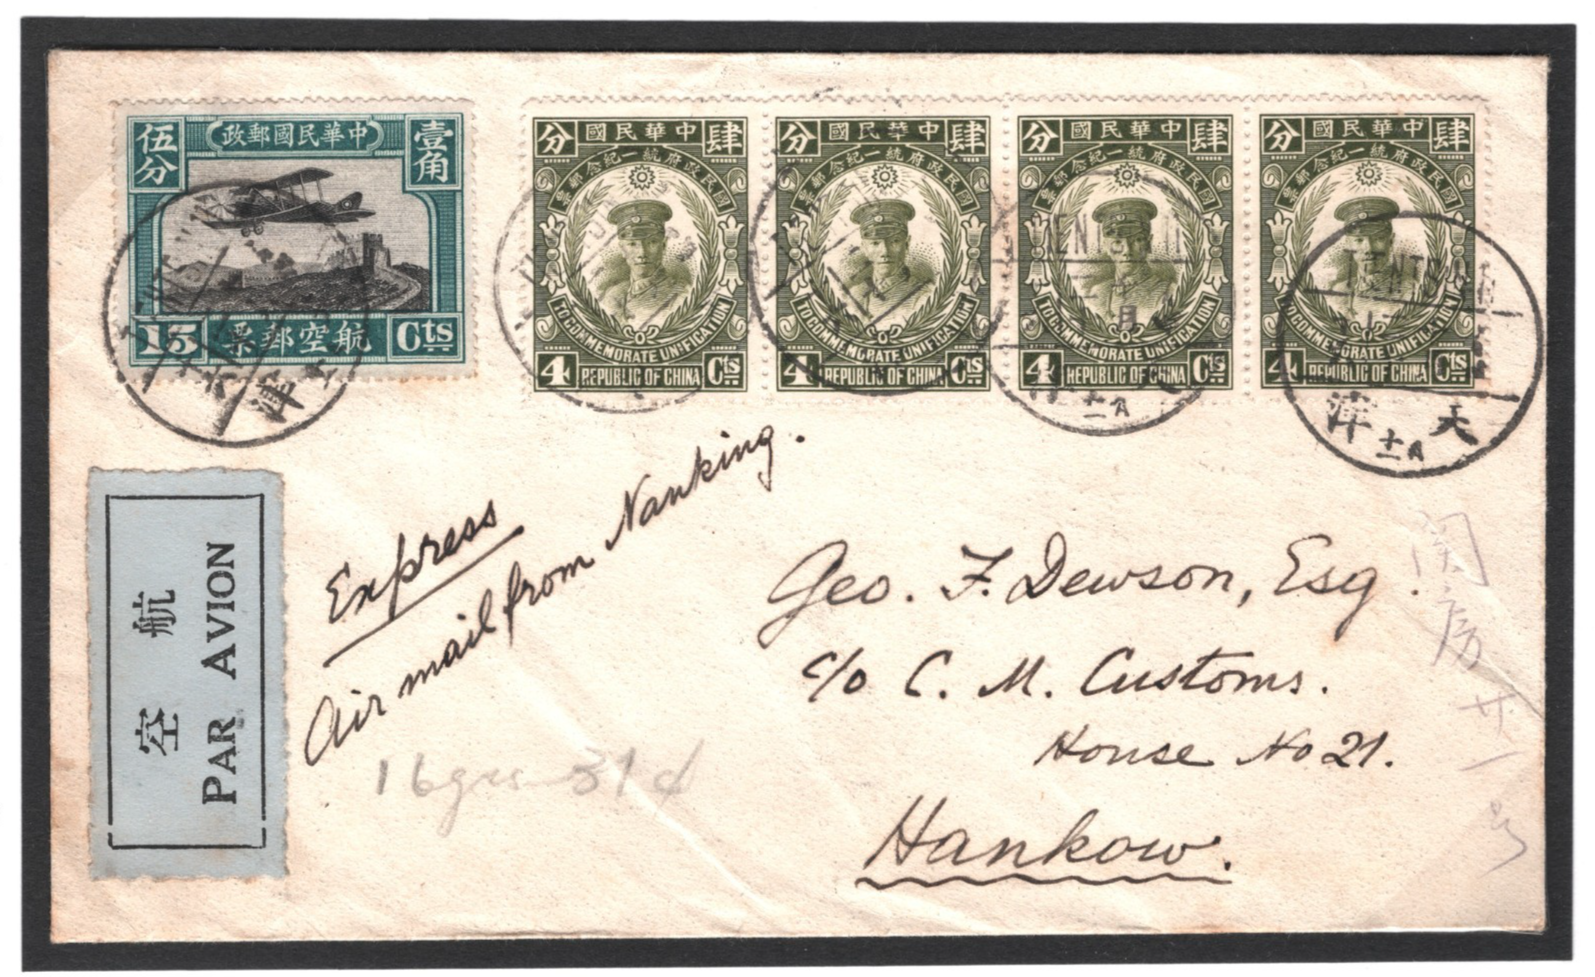 伍分 政郵國民華中 壹角
15 票郵空航 Cts
分 國民民華中 肆
票郵念紀一統府政民國
TO COMMEMORATE UNIFICATION
4 REPUBLIC OF CHINA Cts
分 國民華中 肆
票郵念紀一統府政民國
TO COMMEMORATE UNIFICATION
4 REPUBLIC OF CHINA Cts
分 國民華中 肆
票郵念紀一統府政民國
TO COMMEMORATE UNIFICATION
4 REPUBLIC OF CHINA Cts
分 國民華中 肆
票郵念紀一統府政民國
TO COMMEMORATE UNIFICATION
4 REPUBLIC OF CHINA Cts
津
TIENTSIN
津 天
十一月
空 航
PAR AVION
Express
Air mail from Nanking.
Geo. F. Dewson, Esq.
c/o C. M. Customs.
House No 21.
Hankow.
房廿一号